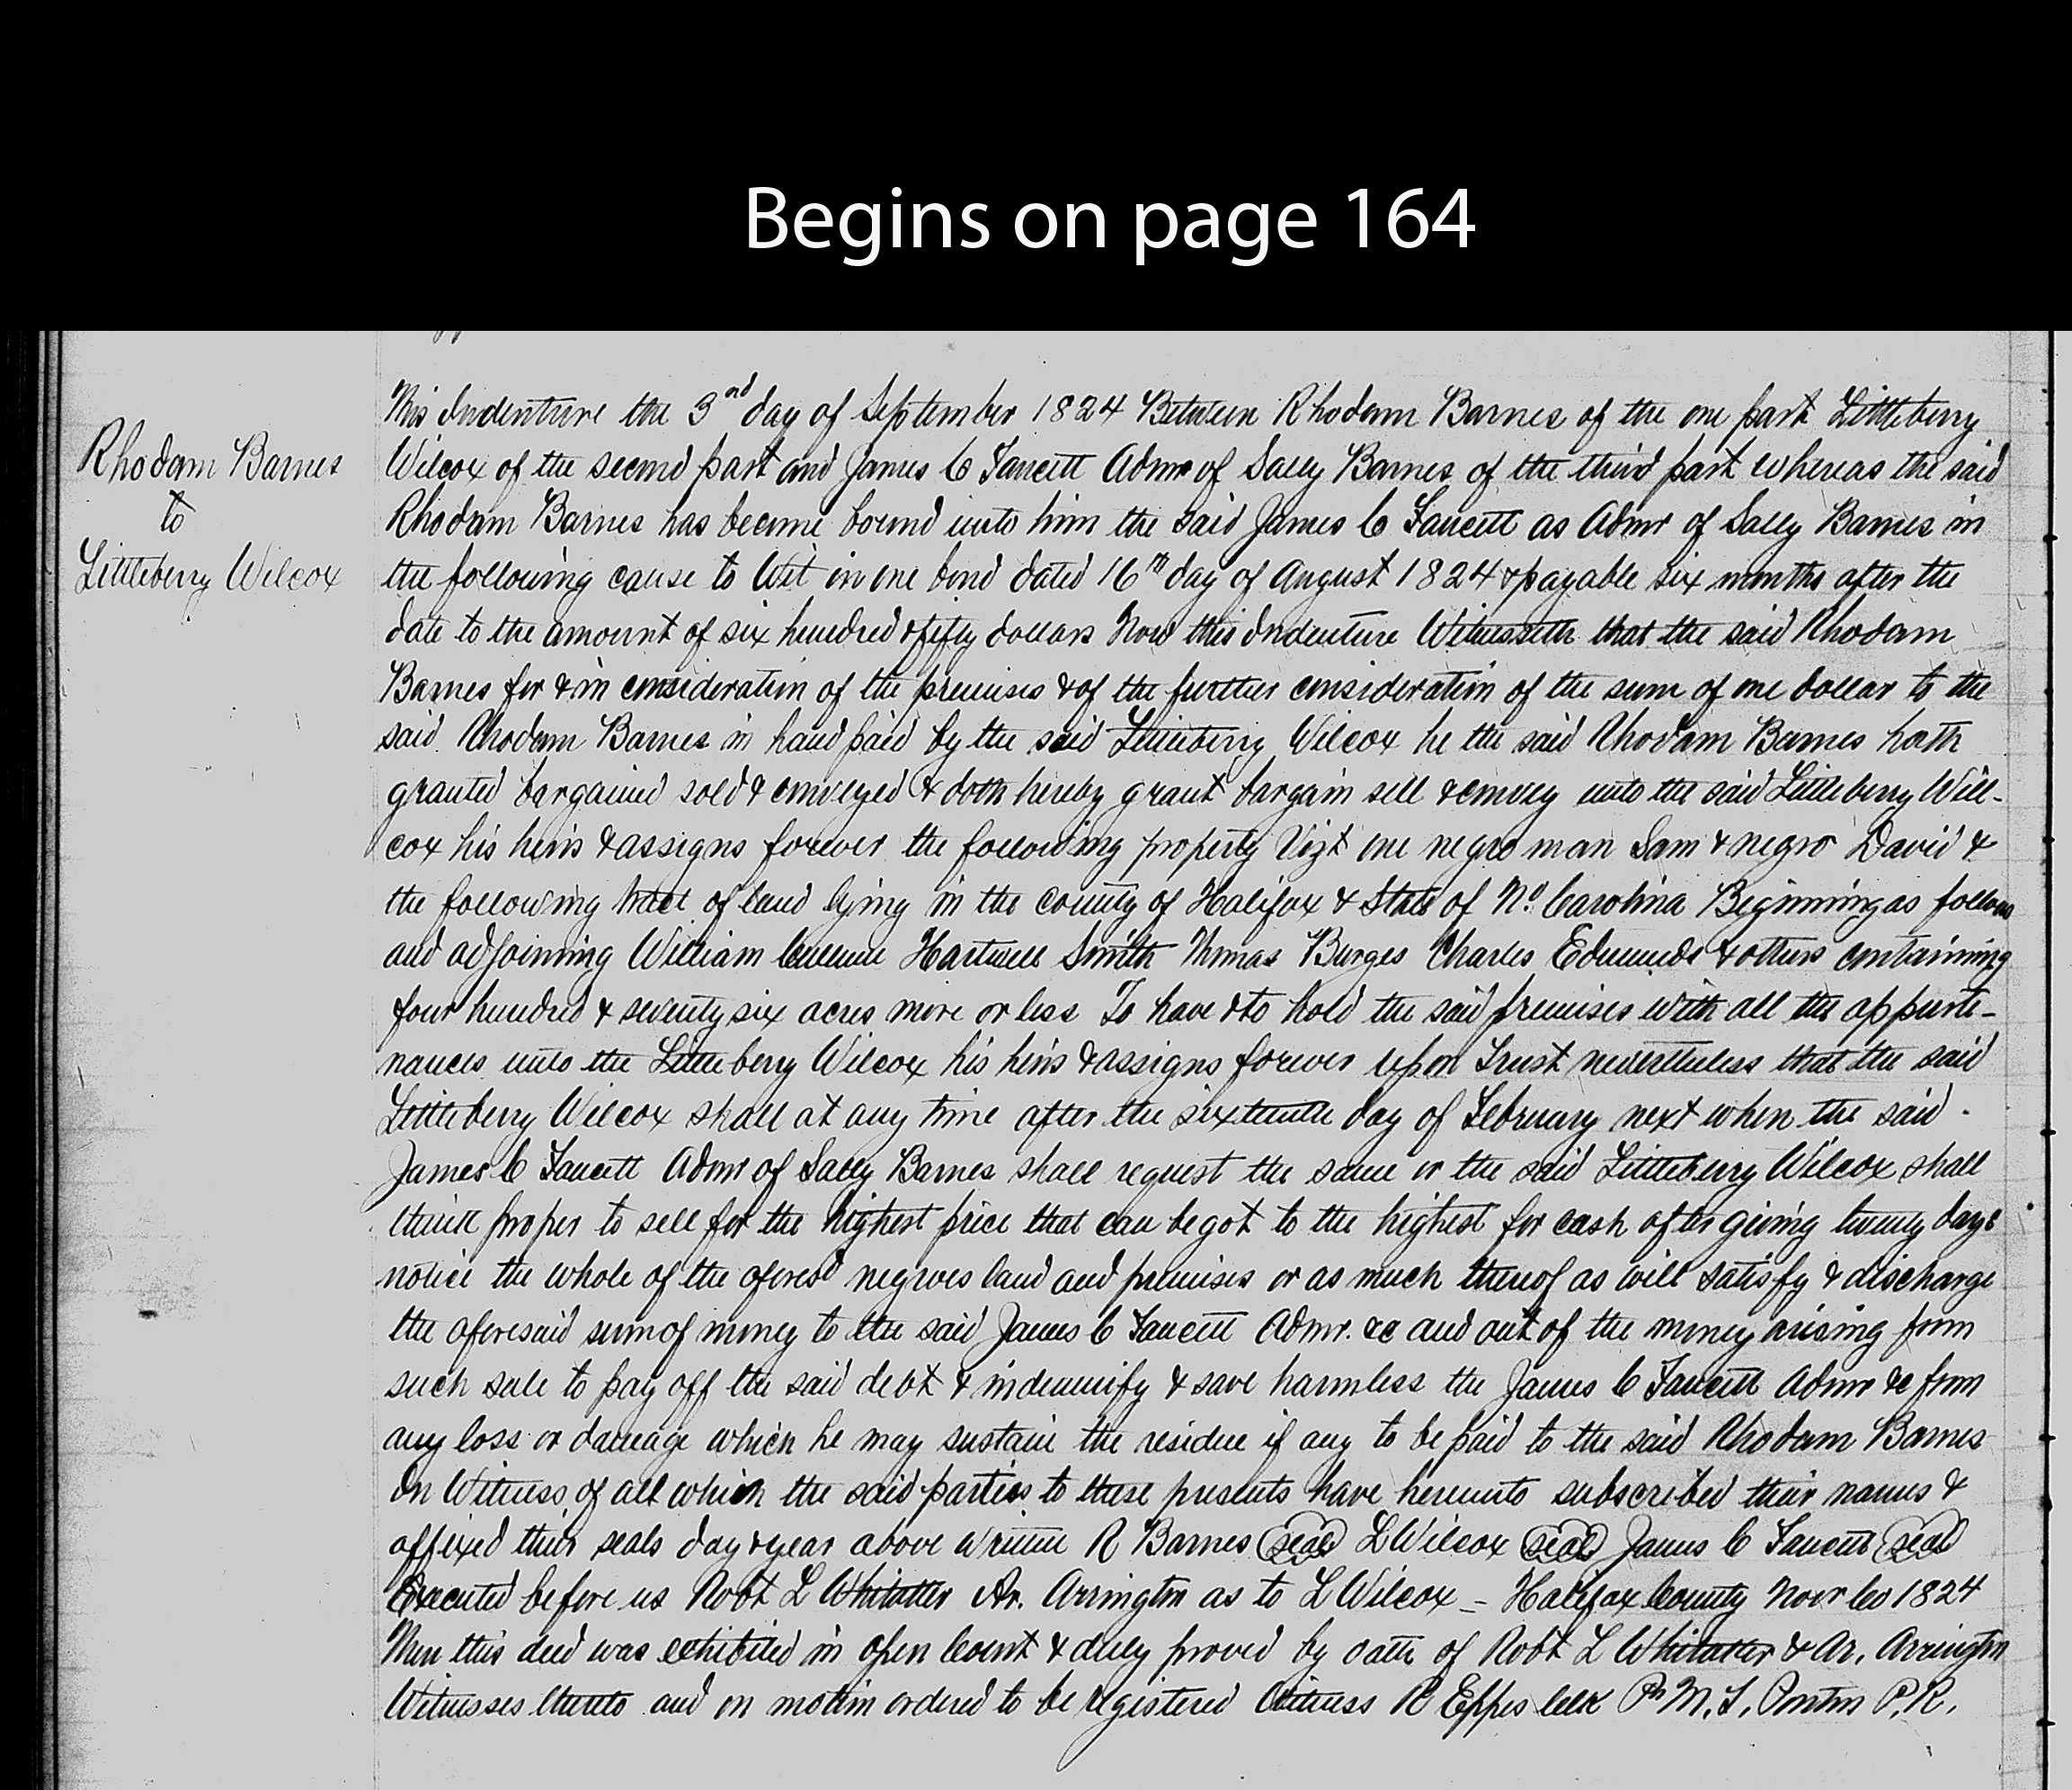 Begins on page 164
Rhodam Barnes
to
Littleberry Wilcox
This Indenture the 3nd day of September 1824 Between Rhodam Barnes of the one part Littleberry
Wilcox of the second part and James C Faucett Admr of Sally Barnes of the third part whereas the said
Rhodam Barnes has become bound unto him the said James C Faucett as Admr of Sally Barnes in
the following cause to Wit in one bond dated 16th day of August 1824 & payable six months after the
date to the amount of six hundred & fifty dollars Now this Indenture Witnesseth that the said Rhodam
Barnes for & in consideration of the premises & of the further consideration of the sum of one dollar to the
said Rhodam Barnes in hand paid by the said Littleberry Wilcox he the said Rhodam Barnes hath
granted bargained sold & conveyed & doth hereby grant bargain sell & convey unto the said Littleberry Will-
cox his heirs & assigns forever the following property Vizt one negro man Sam & negro David &
the following tract of land lying in the county of Halifax & State of No. Carolina Beginning as follows
and adjoining William Hartwell Smith Thomas Burges Charles Edmunds & others containing
four hundred & seventy six acres more or less To have & to hold the said premises with all the appurte-
nances unto the Littleberry Wilcox his heirs & assigns forever upon Trust nevertheless that the said
Littleberry Wilcox shall at any time after the sixteenth day of February next when the said
James C Faucett Admr of Sally Barnes shall request the same or the said Littleberry Wilcox shall
think proper to sell for the highest price that can be got to the highest for cash after giving twenty days
notice the whole of the aforesd negroes land and premises or as much thereof as will satisfy & discharge
the aforesaid sum of money to the said James C Faucett Admr. &c and out of the money arising from
such sale to pay off the said debt & indemnify & save harmless the James C Faucett Admr &c from
any loss or damage which he may sustain the residue if any to be paid to the said Rhodam Barnes
In Witness of all which the said parties to these presents have hereunto subscribed their names &
affixed their seals day & year above written R Barnes seal L Wilcox seal James C Faucett seal
Executed before us Robt L Whitaker Ar. Arrington as to L Wilcox - Halifax County Novr Co 1824
Then this deed was exhibited in open Court & duly proved by oath of Robt L Whitaker & Ar. Arrington
Witnesses thereto and on motion ordered to be registered Witness R Eppes Clk Pr M. F. P.R.